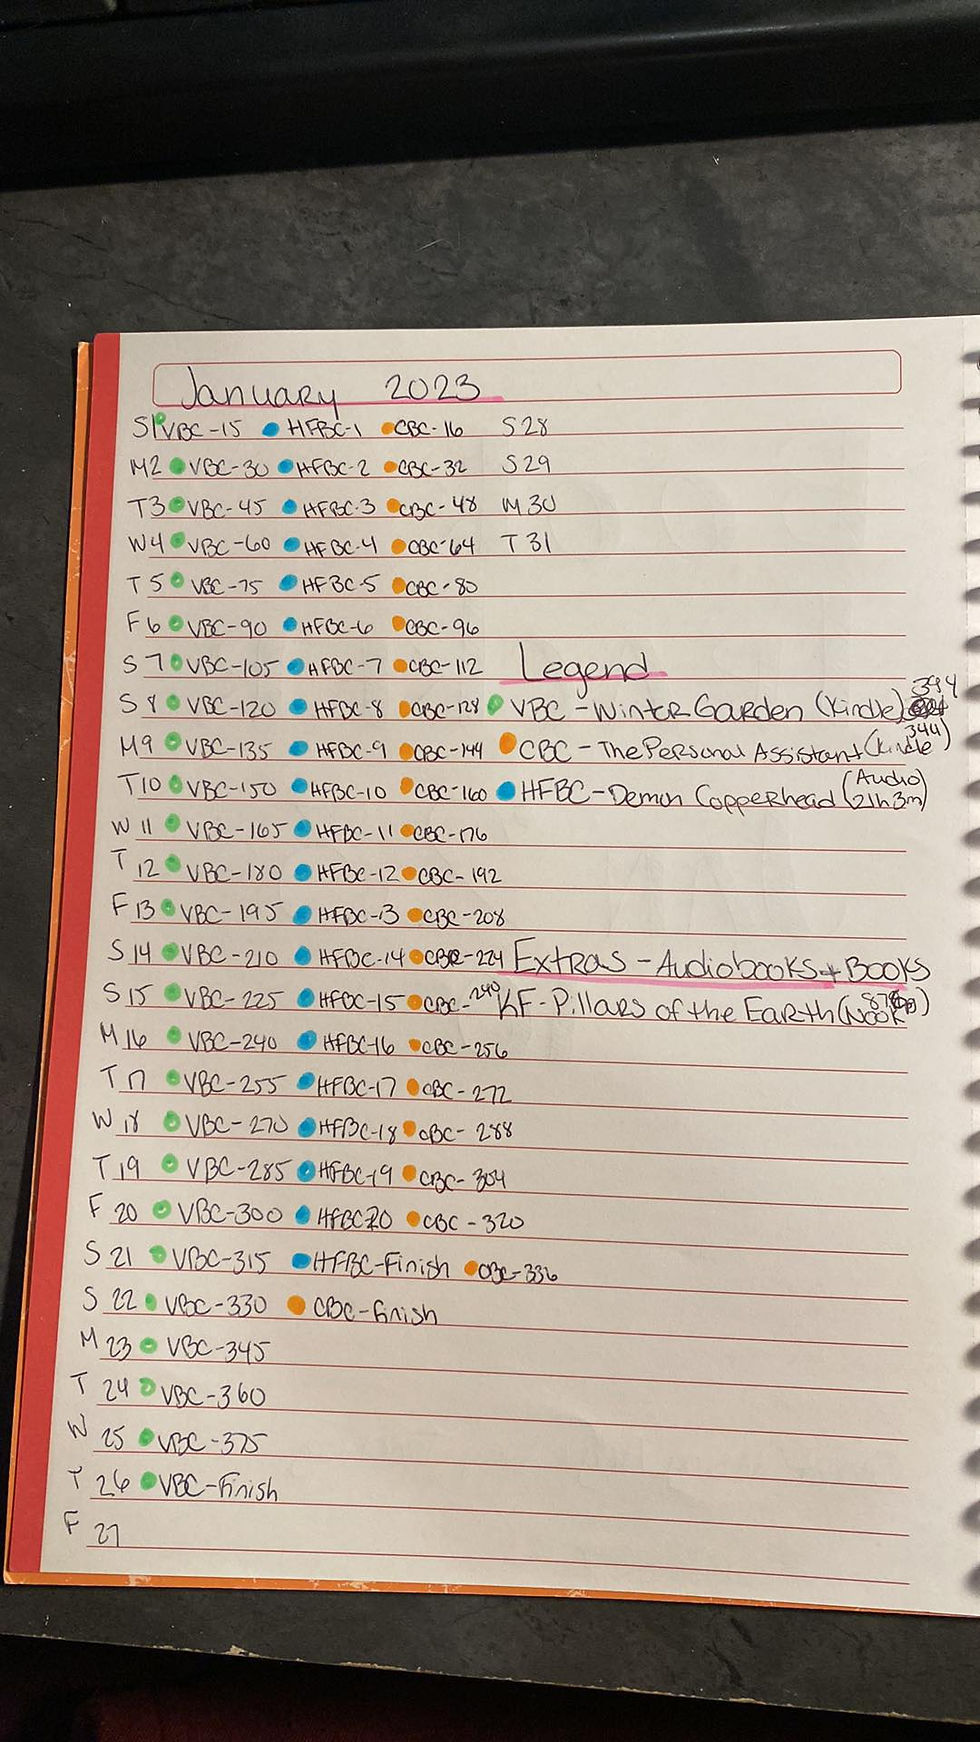 January 2023
S1 VBC-15 HFBC-1 CBC-16 S28
M2 VBC-30 HFBC-2 CBC-32 S29
T3 VBC-45 HFBC-3 CBC-48 M30
W4 VBC-60 HFBC-4 CBC-64 T31
T5 VBC-75 HFBC-5 CBC-80
F6 VBC-90 HFBC-6 CBC-96
S7 VBC-105 HFBC-7 CBC-112 Legend
S8 VBC-120 HFBC-8 CBC-128 VBC-Winter Garden (Kindle) 394
M9 VBC-135 HFBC-9 CBC-144 CBC-The Personal Assistant (Kindle 344)
T10 VBC-150 HFBC-10 CBC-160 HFBC-Demon Copperhead (Audio) (21h3m)
W11 VBC-165 HFBC-11 CBC-176
T12 VBC-180 HFBC-12 CBC-192
F13 VBC-195 HFBC-13 CBC-208
S14 VBC-210 HFBC-14 CBC-224 Extras-Audiobooks+Books
S15 VBC-225 HFBC-15 CBC-240 KF-Pillars of the Earth (Nook)
M16 VBC-240 HFBC-16 CBC-256
T17 VBC-255 HFBC-17 CBC-272
W18 VBC-270 HFBC-18 CBC-288
T19 VBC-285 HFBC-19 CBC-304
F20 VBC-300 HFBC20 CBC-320
S21 VBC-315 HFBC-Finish CBC-336
S22 VBC-330 CBC-finish
M23 VBC-345
T24 VBC-360
W25 VBC-375
T26 VBC-Finish
F27